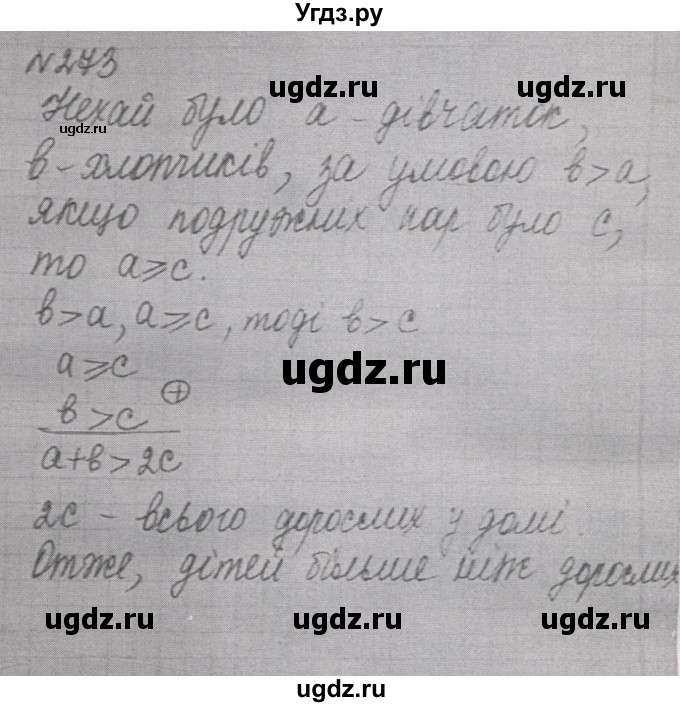 Угдз.ру
ugdz.ru
№273
ugdz.ru ugdz.ru
Нехай було a - дівчаток,
ugdz.ru
в - хлопчиків, за умовою в > a,
якщо подружних пар було c,
то a ⩾ c.
в > a, a ⩾ c, тоді в > c
a ⩾ c
ugdz.ru
⊕
в > c
a + в > 2c
2c - всього дорослих у домі.
ugdz.ru ugdz.ru
Отже, дітей більше ніж дорослих
ugdz.ru ugdz.ru ugdz.ru
ugdz.ru